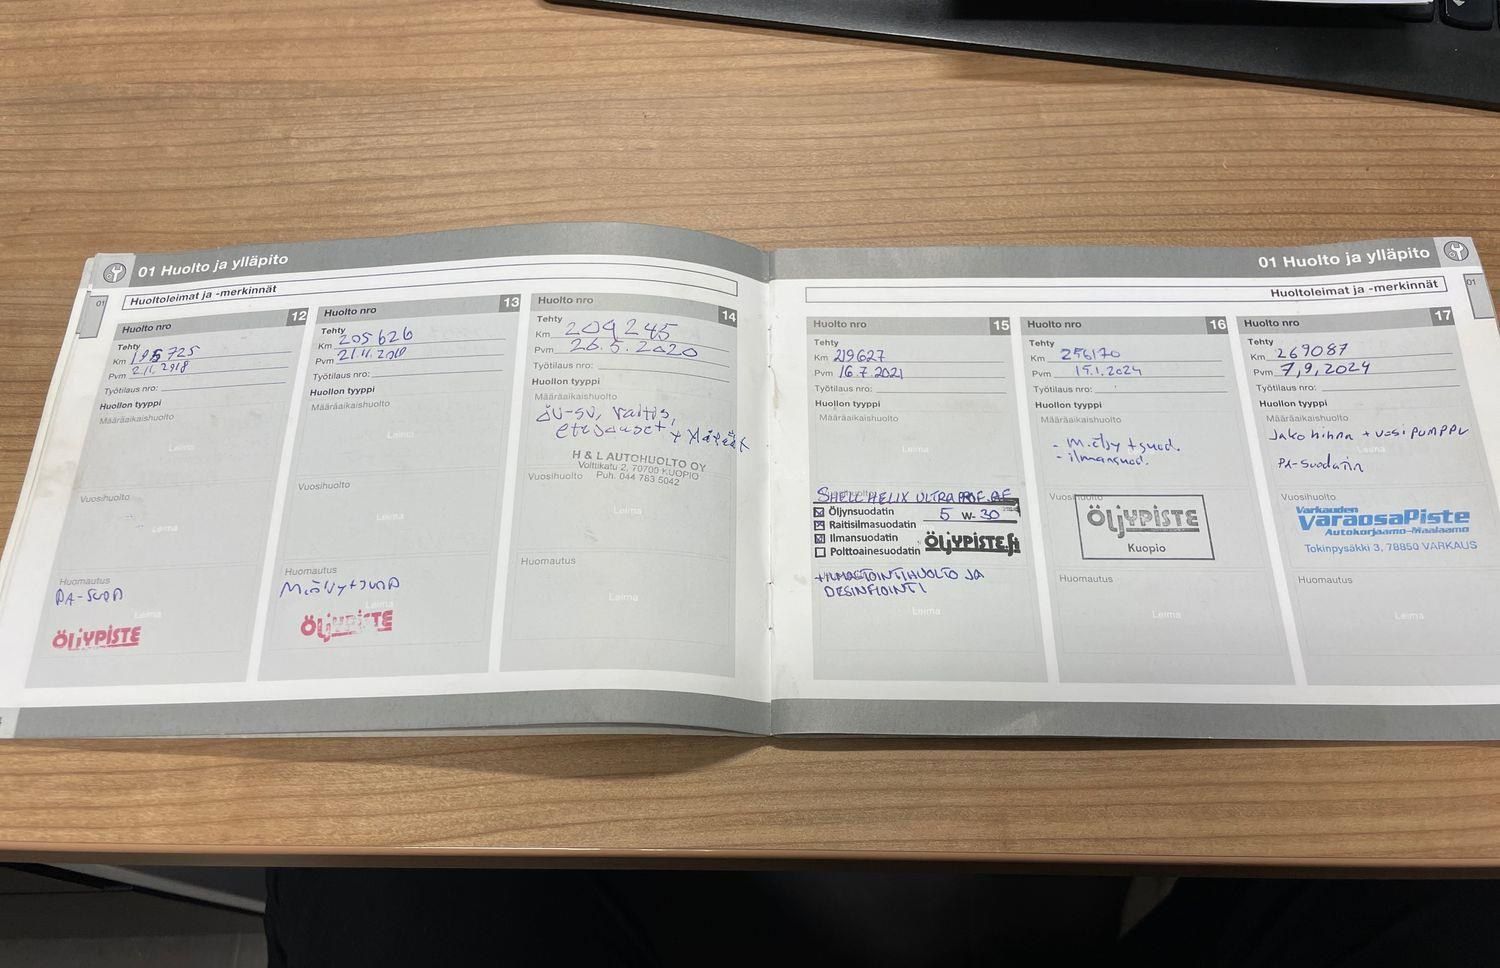 01 Huolto ja ylläpito
01
Huoltoleimat ja -merkinnät
Huolto nro 12
Tehty
Km 195725
Pvm 2.11.2018
Työtilaus nro:
Huollon tyyppi
Määräaikaishuolto
Leima
Vuosihuolto
Leima
Huomautus
PA-SUOD
Leima
ÖLJYPISTE
Huolto nro 13
Tehty
Km 205626
Pvm
Työtilaus nro:
Huollon tyyppi
Määräaikaishuolto
Leima
Vuosihuolto
Leima
Huomautus
Leima
ÖLJYPISTE
Huolto nro 14
Tehty
Km 209245
Pvm 26.5.2020
Työtilaus nro:
Huollon tyyppi
Määräaikaishuolto
öl-su, raitis,
H & L AUTOHUOLTO OY
Volttikatu 2, 70700 KUOPIO
Puh. 044 783 5042
Vuosihuolto
Leima
Huomautus
Leima
01 Huolto ja ylläpito
01
Huoltoleimat ja -merkinnät
Huolto nro 15
Tehty
Km 219627
Pvm 16.7.2021
Työtilaus nro:
Huollon tyyppi
Määräaikaishuolto
Leima
SHELL HELIX ULTRA PROF. AF
Öljynsuodatin 5 W-30
Raitisilmasuodatin
Ilmansuodatin
Polttoainesuodatin
ÖLJYPISTE.fi
+ILMASTOINTIHUOLTO JA
DESINFIOINTI
Leima
Huolto nro 16
Tehty
Km 256170
Pvm 15.1.2024
Työtilaus nro:
Huollon tyyppi
Määräaikaishuolto
- m.öljy + suod.
- ilmansuod.
Vuosihuolto
ÖLJYPISTE
Kuopio
Huomautus
Leima
Huolto nro 17
Tehty
Km 269087
Pvm 7,9,2024
Työtilaus nro:
Huollon tyyppi
Määräaikaishuolto
Jakohihna + vesipumppu
PA-suodatin
Vuosihuolto
Varkauden
VaraosaPiste
Autokorjaamo-Maalaamo
Tokinpysäkki 3, 78850 VARKAUS
Huomautus
Leima